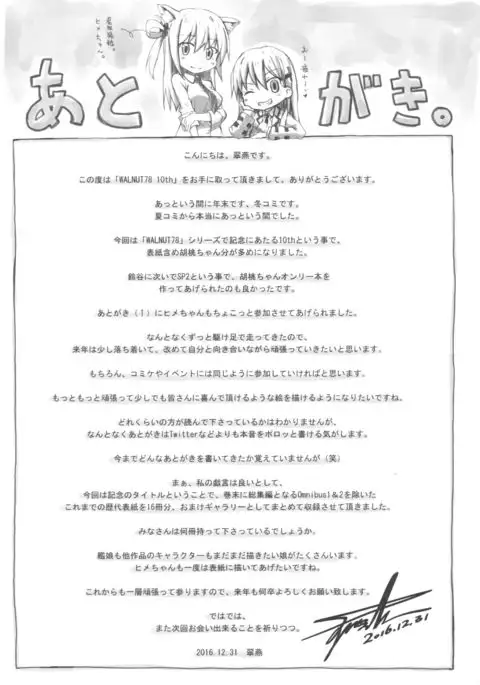 あとがき。
こんにちは。翠燕です。
この度は「WALNUT78 10th」をお手に取って頂きまして、ありがとうございます。
あっという間に年末です、冬コミです。
夏コミから本当にあっという間でした。
今回は「WALNUT78」シリーズで記念にあたる10thという事で、
表紙含め胡桃ちゃん分が多めになりました。
鈴谷に次いでSP2という事で、胡桃ちゃんオンリー本を
作ってあげられたのも良かったです。
あとがき（！）にヒメちゃんもちょこっと参加させてあげられました。
なんとなくずっと駆け足で走ってきたので、
来年は少し落ち着いて、改めて自分と向き合いながら頑張っていきたいと思います。
もちろん、コミケやイベントには同じように参加していければと思います。
もっともっと頑張って少しでも皆さんに喜んで頂けるような絵を描けるようになりたいですね。
どれくらいの方が読んで下さっているかはわかりませんが、
なんとなくあとがきはTwitterなどよりも本音をポロッと書ける気がします。
今までどんなあとがきを書いてきたか覚えていませんが（笑）
まぁ、私の戯言は良いとして、
今回は記念のタイトルということで、巻末に総集編となるOmnibus1&2を除いた
これまでの歴代表紙を16冊分、おまけギャラリーとしてまとめて収録させて頂きました。
みなさんは何冊持って下さっているでしょうか。
艦娘も他作品のキャラクターもまだまだ描きたい娘がたくさんいます。
ヒメちゃんも一度は表紙に描いてあげたいですね。
これからも一層頑張って参りますので、来年も何卒よろしくお願い致します。
ではでは、
また次回お会い出来ることを祈りつつ。
2016.12.31 翠燕
2016.12.31